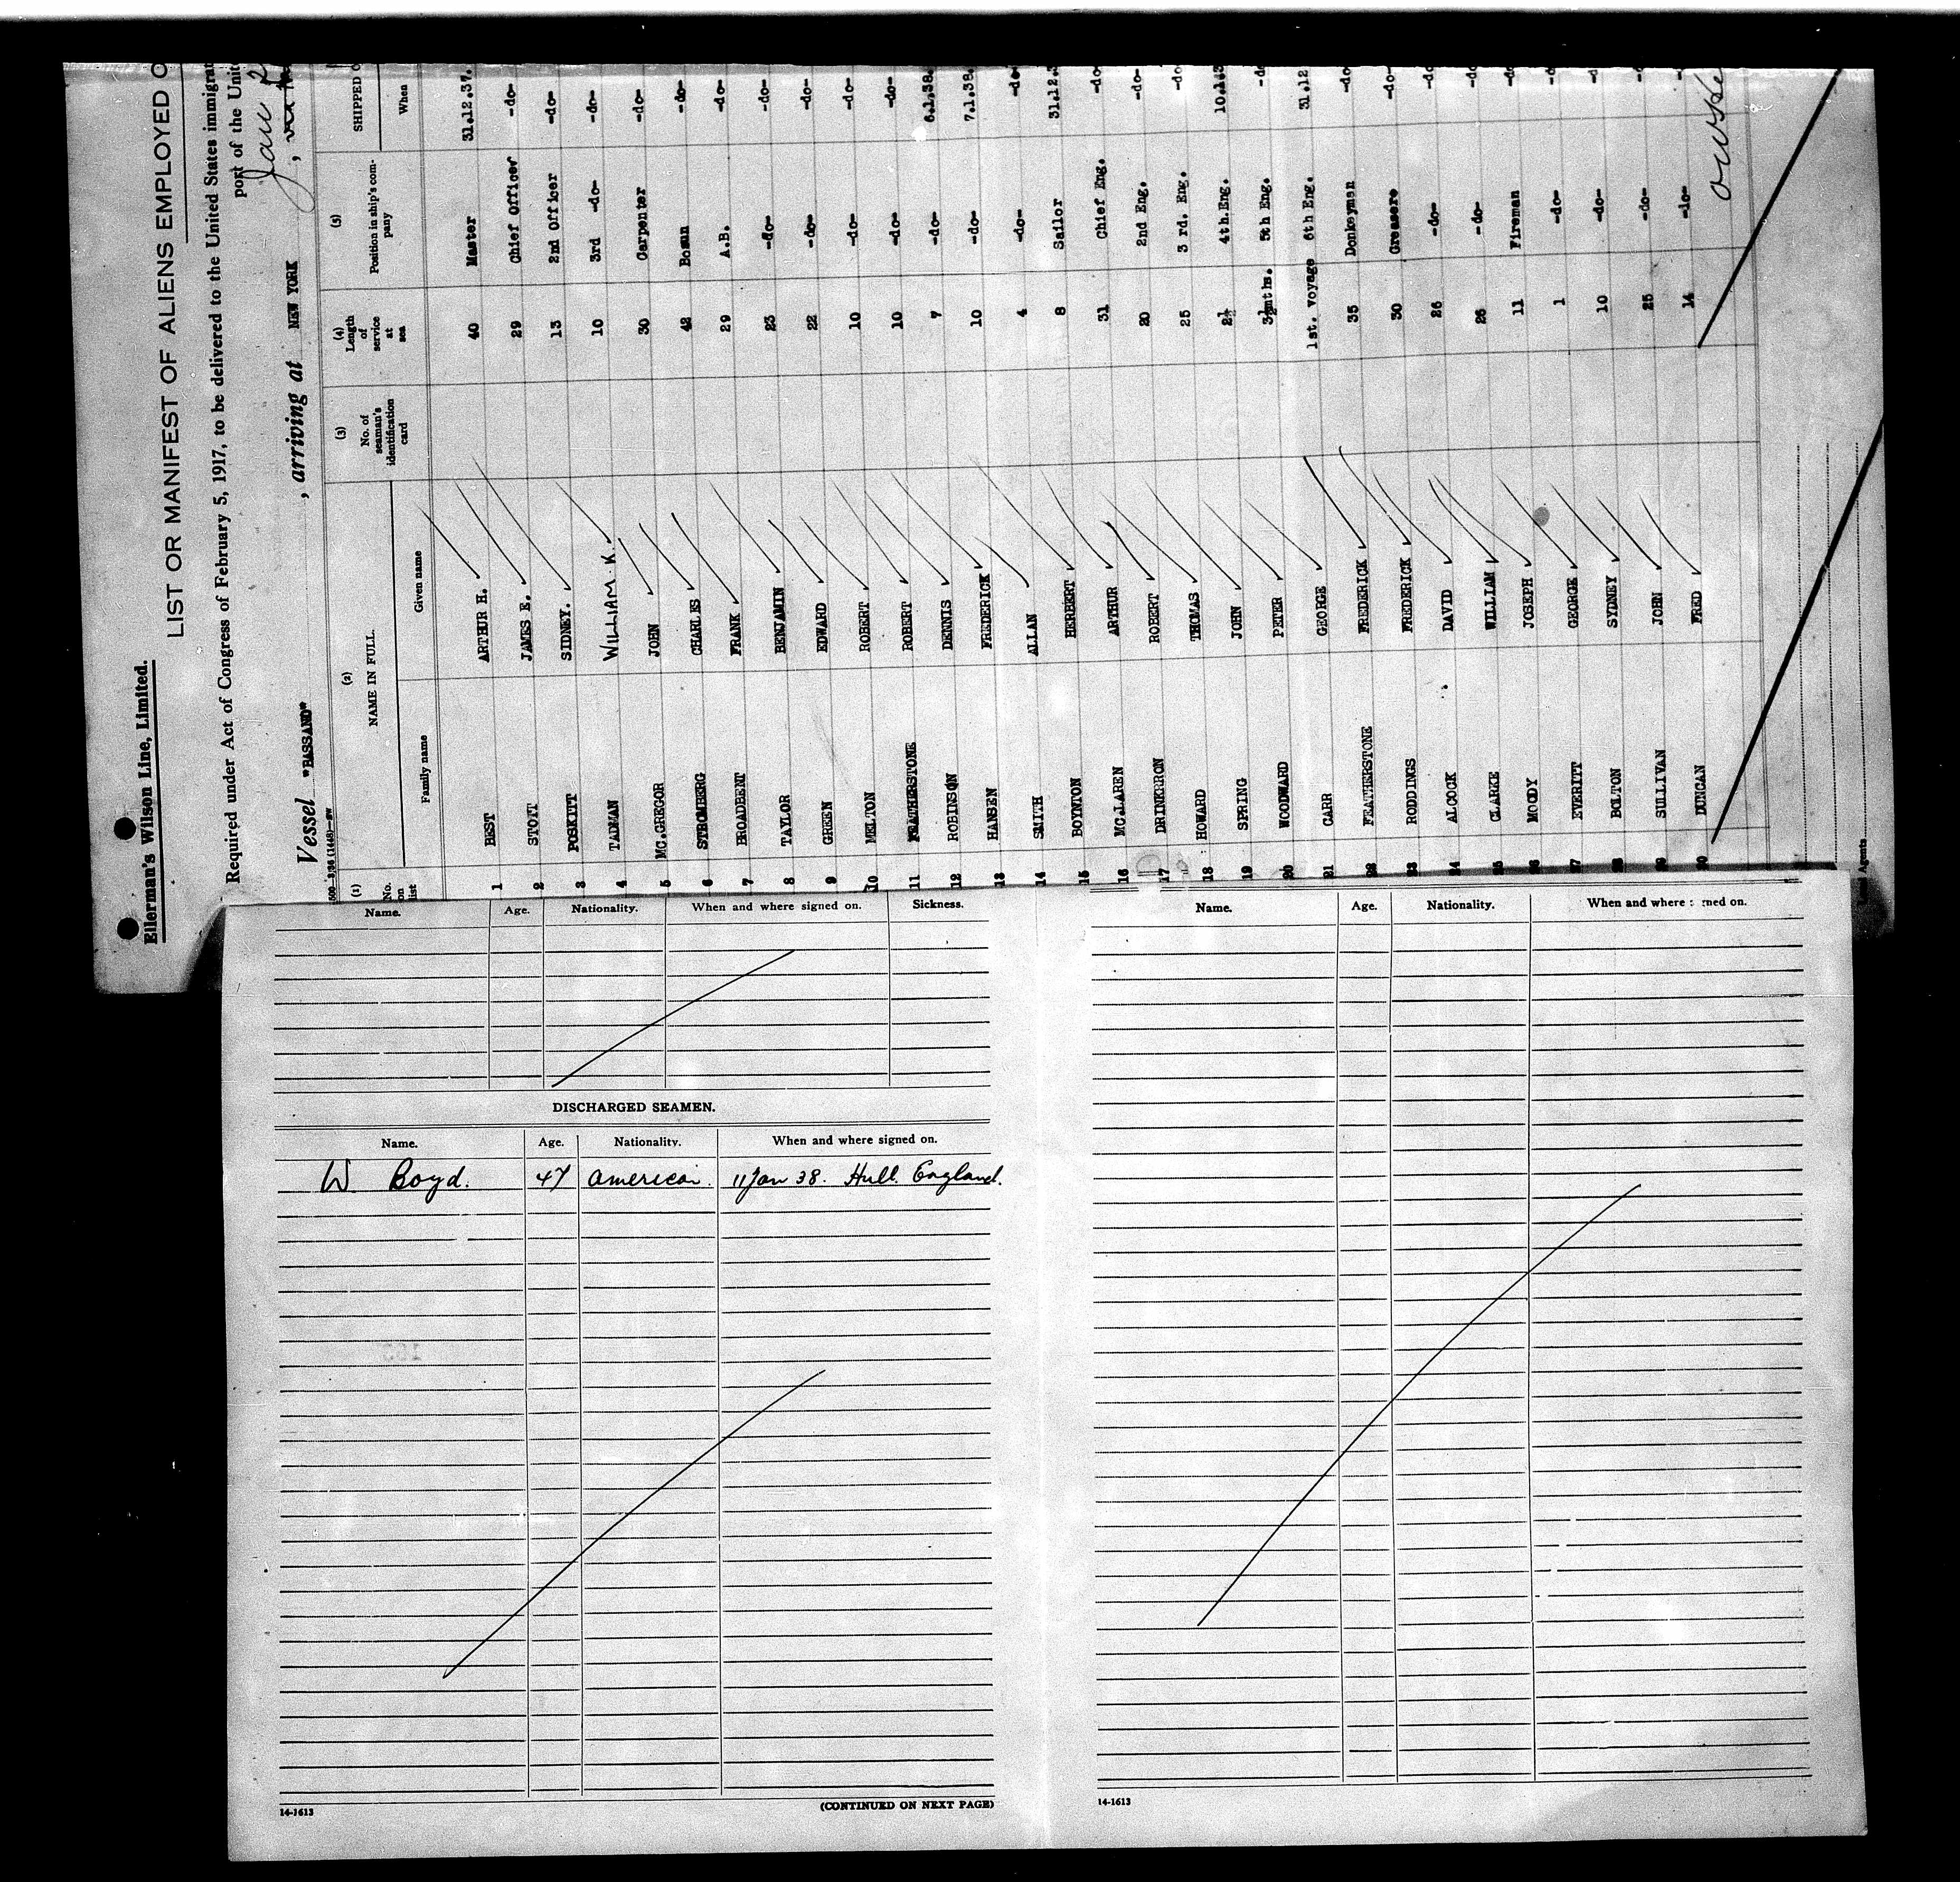 Ellerman's Wilson Line, Limited.
LIST OR MANIFEST OF ALIENS EMPLOYED O
Required under Act of Congress of February 5, 1917, to be delivered to the United States immigrat
port of the Unite
Vessel "BASSANO" , arriving at NEW YORK , Jan
(1) No. on list (2) NAME IN FULL. Family name Given name (3) No. of seaman's identification card (4) Length of service at sea (5) Position in ship's com-pany SHIPPED O When
1 BEST ARTHUR H. 40 Master 31.12.37.
2 STOTT JAMES E. 29 Chief Officer -do-
3 POSKITT SIDNEY. 13 2nd Officer -do-
4 TADMAN WILLIAM K. 10 3rd -do- -do-
5 MC.GREGOR JOHN 30 Carpenter -do-
6 STROMBERG CHARLES 42 Bosun -do-
7 BROADBENT FRANK 29 A.B. -do-
8 TAYLOR BENJAMIN 23 -do- -do-
9 GREEN EDWARD 22 -do- -do-
10 MELTON ROBERT 10 -do- -do-
11 FEATHERSTONE ROBERT 10 -do- -do-
12 ROBINSON DENNIS 7 -do- 6.1.38.
13 HANSEN FREDERICK 10 -do- 7.1.38.
14 SMITH ALLAN 4 -do- -do-
15 BOYNTON HERBERT 8 Sailor 31.12.3
16 MC.LAREN ARTHUR 31 Chief Eng. -do-
17 DRINKRON ROBERT 20 2nd Eng. -do-
18 HOWARD THOMAS 25 3 rd. Eng. -do
19 SPRING JOHN 2½ 4th.Eng. 10.1.3
20 WOODWARD PETER 3½mths. 5th Eng. -do
21 CARR GEORGE 1st. Voyage 6th Eng. 31.12
22 FEATHERSTONE FREDERICK 35 Donkeyman -do
23 RODDINGS FREDERICK 30 Greasers -do-
24 ALCOCK DAVID 26 -do- -do
25 CLARKE WILLIAM 26 -do- -do
26 MOODY JOSEPH 11 Fireman -do
27 EVERITT GEORGE 1 -do- -d
28 BOLTON SYDNEY 10 -do- -d
29 SULLIVAN JOHN 25 -do- -d
30 DUNCAN FRED 14 -do- -d
Agents
Name. Age. Nationality. When and where signed on. Sickness.
DISCHARGED SEAMEN.
Name. Age. Nationality. When and where signed on.
W Boyd. 47 American. 11 Jan 38. Hull. England.
14-1613 (CONTINUED ON NEXT PAGE)
Name. Age. Nationality. When and where : ned on.
14-1613